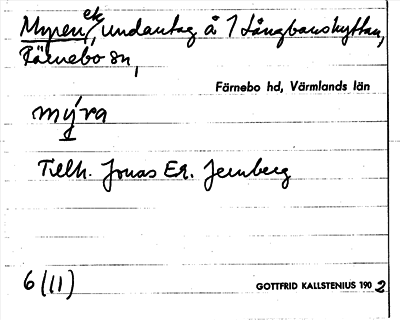 Myren, ek, undantag å 1 Långbanshyttan,
Färnebo sn,
Färnebo hd, Värmlands län
mỳra
Tillh. Jonas Er. Jernberg
6 (11) GOTTFRID KALLSTENIUS 1902